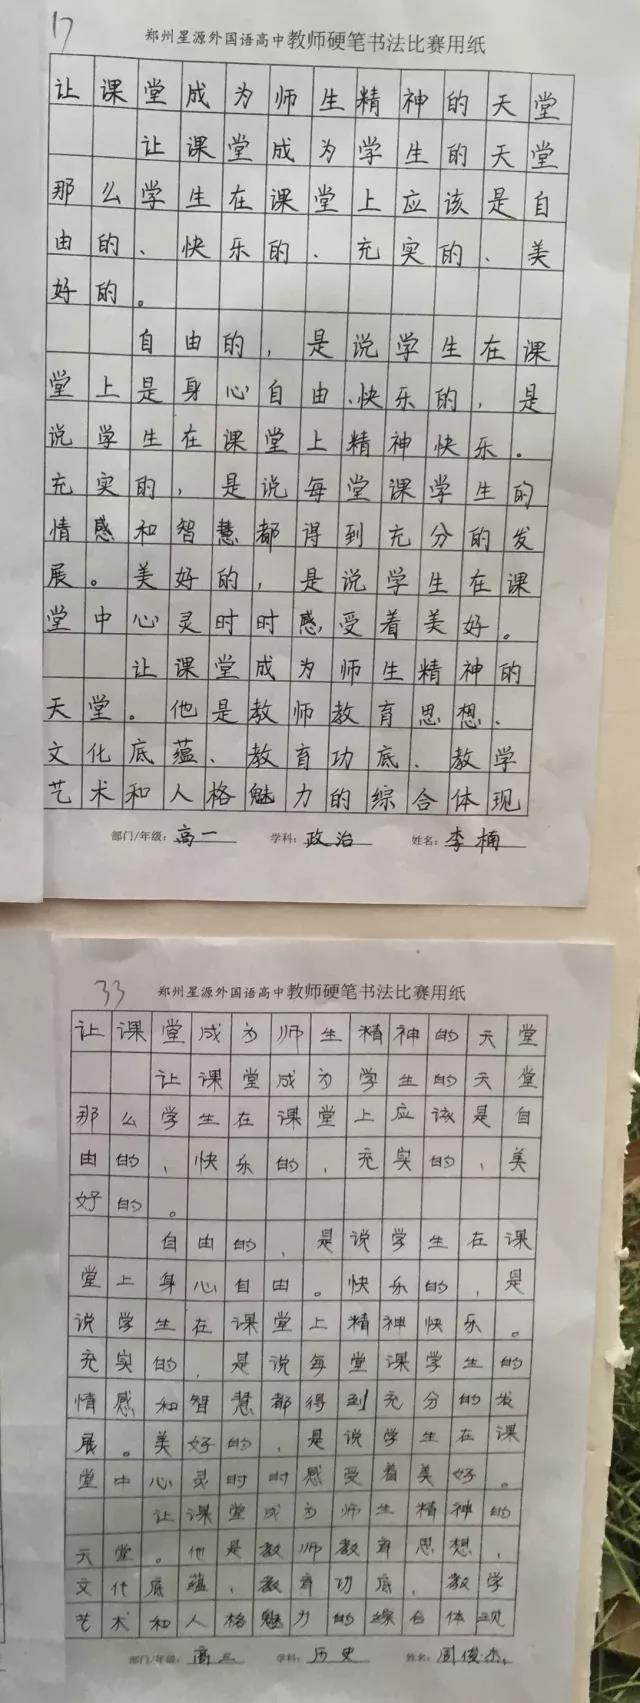 17
郑州星源外国语高中教师硬笔书法比赛用纸
让课堂成为师生精神的天堂
让课堂成为学生的天堂
那么学生在课堂上应该是自
由的、快乐的、充实的、美
好的。
自由的,是说学生在课
堂上是身心自由、快乐的,是
说学生在课堂上精神快乐。
充实的,是说每堂课学生的
情感和智慧都得到充分的发
展。美好的,是说学生在课
堂中心灵时时感受着美好。
让课堂成为师生精神的
天堂。他是教师教育思想、
文化底蕴、教育功底、教学
艺术和人格魅力的综合体现
部门/年级:高一 学科:政治 姓名:李楠
33
郑州星源外国语高中教师硬笔书法比赛用纸
让课堂成为师生精神的天堂
让课堂成为学生的天堂
那么学生在课堂上应该是自
由的,快乐的,充实的,美
好的。
自由的,是说学生在课
堂上身心自由。快乐的,是
说学生在课堂上精神快乐。
充实的,是说每堂课学生的
情感和智慧都得到充分的发
展。美好的,是说学生在课
堂中心灵时时感受着美好。
让课堂成为师生精神的
天堂。他是教师教育思想,
文化底蕴,教育功底,教学
艺术和人格魅力的综合体现
部门/年级:高三 学科:历史 姓名:周俊杰